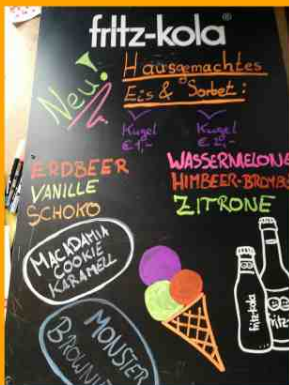 fritz-kola®
Neu!
Hausgemachtes
Eis & Sorbet:
Kugel
€1,-
Kugel
€2,-
ERDBEER
VANILLE
SCHOKO
WASSERMELONE
HIMBEER-BROMB
ZITRONE
MACADAMIA
COOKIE
KARAMELL
MONSTER
BROWNIE
fritz-kola